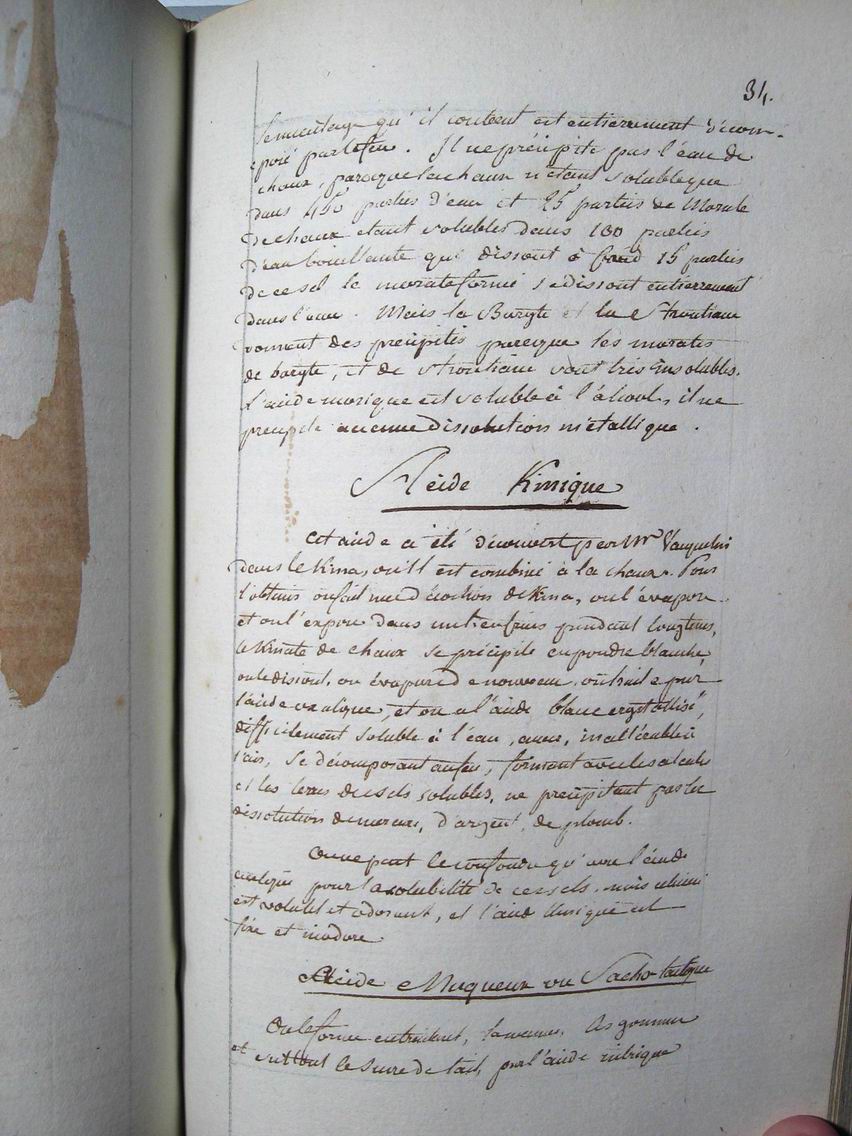 34.
qu'il contient est entierrement décom-
posé par le feu. Il ne précipite pas l'eau de
chaux, parceque la chaux n'étant soluble que
dans 450 parties d'eau et 25 parties de Morate
de chaux etant solubles dans 100 parties
d'eau bouillante qui dissout à froid 15 parties
de ce sel le morate formé se dissout entierrement
dans l'eau. Mais la Baryte et la Strontiane
donnent des précipités parceque les morates
de baryte, et de strontiane sont très insolubles.
l'acide morique est soluble à l'alcool, il ne
precipite aucune dissolution métallique.
Acide Kinique
Cet acide a été découvert par Mr Vauquelin
dans le Kina, où il est combiné à la chaux. Pour
l'obtenir on fait une décoction de Kina, on l'évapore
et on l'expose dans un lieu frais pendant longtems,
le Kinate de chaux se précipite en poudre blanche,
on le dissout, on évapore de nouveau, on traite par
l'acide oxalique, et on a l'acide blanc crystallisé,
difficilement soluble à l'eau, amer, inaltérable à
l'air, se décomposant au feu, formant avec les alcalis
et les terres des sels solubles, ne précipitant pas la
dissolution de mercure, d'argent, de plomb.
On ne peut le confondre qu'avec l'acide
pour la solubilité de ces sels, mais celui ci
est volatil et odorant, et l'acide Kinique est
fixe et inodore
Acide Muqueux ou Sacho-lactique
On le forme en traitant, la manne, les gommes
et surtout le sucre de lait, par l'acide nitrique